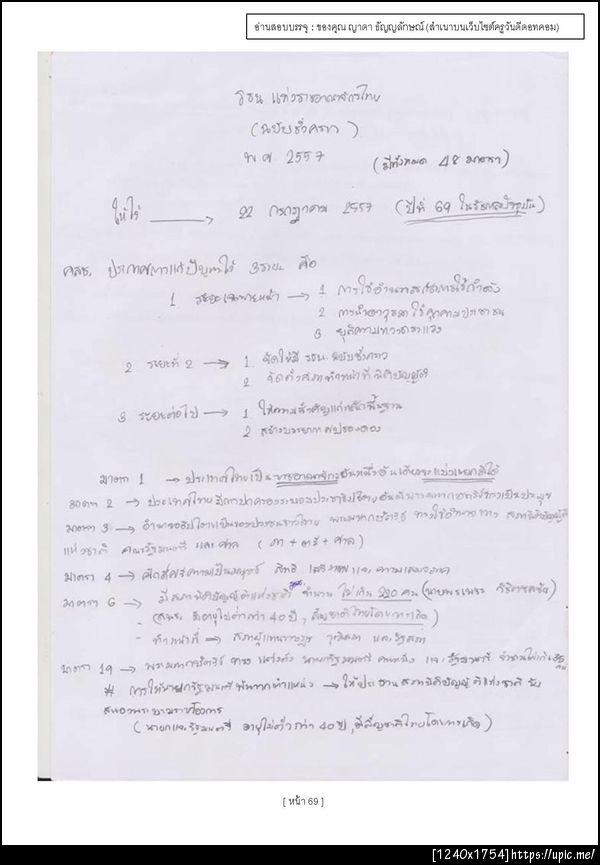 อ่านสอบบรรจุ : ของคุณ ญาดา ธัญญลักษณ์ (สำเนาบนเว็บไซต์ครูวันดีดอทคอม)
รธน แห่งราชอาณาจักรไทย
(ฉบับชั่วคราว)
พ.ศ. 2557 (มีทั้งหมด 48 มาตรา)
ให้ไว้ → 22 กรกฎาคม 2557 (ปีที่ 69 ในรัชกาลปัจจุบัน)
คสช. ประกาศการแก้ปัญหาไว้ 3 ระยะ คือ
1 ระยะเฉพาะหน้า → 1 การใช้อำนาจ การใช้กำลัง
2 การนำอาวุธมาใช้คุกคามประชาชน
3 ยุติความหวาดระแวง
2 ระยะที่ 2 → 1. จัดให้มี รธน. ฉบับชั่วคราว
2 จัดตั้งสภาทำหน้าที่นิติบัญญัติ
3 ระยะต่อไป → 1 ให้ความสำคัญแก่หลักพื้นฐาน
2 สร้างบรรยากาศปรองดอง
มาตรา 1 → ประเทศไทยเป็นราชอาณาจักรอันหนึ่งอันเดียวจะแบ่งแยกมิได้
มาตรา 2 → ประเทศไทยมีการปกครองระบอบประชาธิปไตยอันมีพระมหากษัตริย์ทรงเป็นประมุข
มาตรา 3 → อำนาจอธิปไตยเป็นของปวงชนชาวไทย พระมหากษัตริย์ ทรงใช้อำนาจทาง สภานิติบัญญัติ
แห่งชาติ คณะรัฐมนตรี และ ศาล (สภา + ครม + ศาล)
มาตรา 4 → ศักดิ์ศรีความเป็นมนุษย์ สิทธิ เสรีภาพ และ ความเสมอภาค
มาตรา 6 → มีสภานิติบัญญัติแห่งชาติ จำนวน ไม่เกิน 220 คน (นายพรเพชร วิชิตชลชัย)
- (สนช. มีอายุไม่ต่ำกว่า 40 ปี, สัญชาติไทยโดยการเกิด)
- ทำหน้าที่ → สภาผู้แทนราษฎร วุฒิสภา และรัฐสภา
มาตรา 19 → พระมหากษัตริย์ ทรงแต่งตั้ง นายกรัฐมนตรี คนหนึ่ง และ รัฐมนตรี จำนวนไม่เกิน 35 คน
# การให้นายกรัฐมนตรีพ้นจากตำแหน่ง → ให้ประธานสภานิติบัญญัติแห่งชาติ รับ
สนองพระบรมราชโองการ
(นายกและรัฐมนตรี อายุไม่ต่ำกว่า 40 ปี, มีสัญชาติไทยโดยการเกิด)
[ หน้า 69 ]
[1240x1754]https://upic.me/